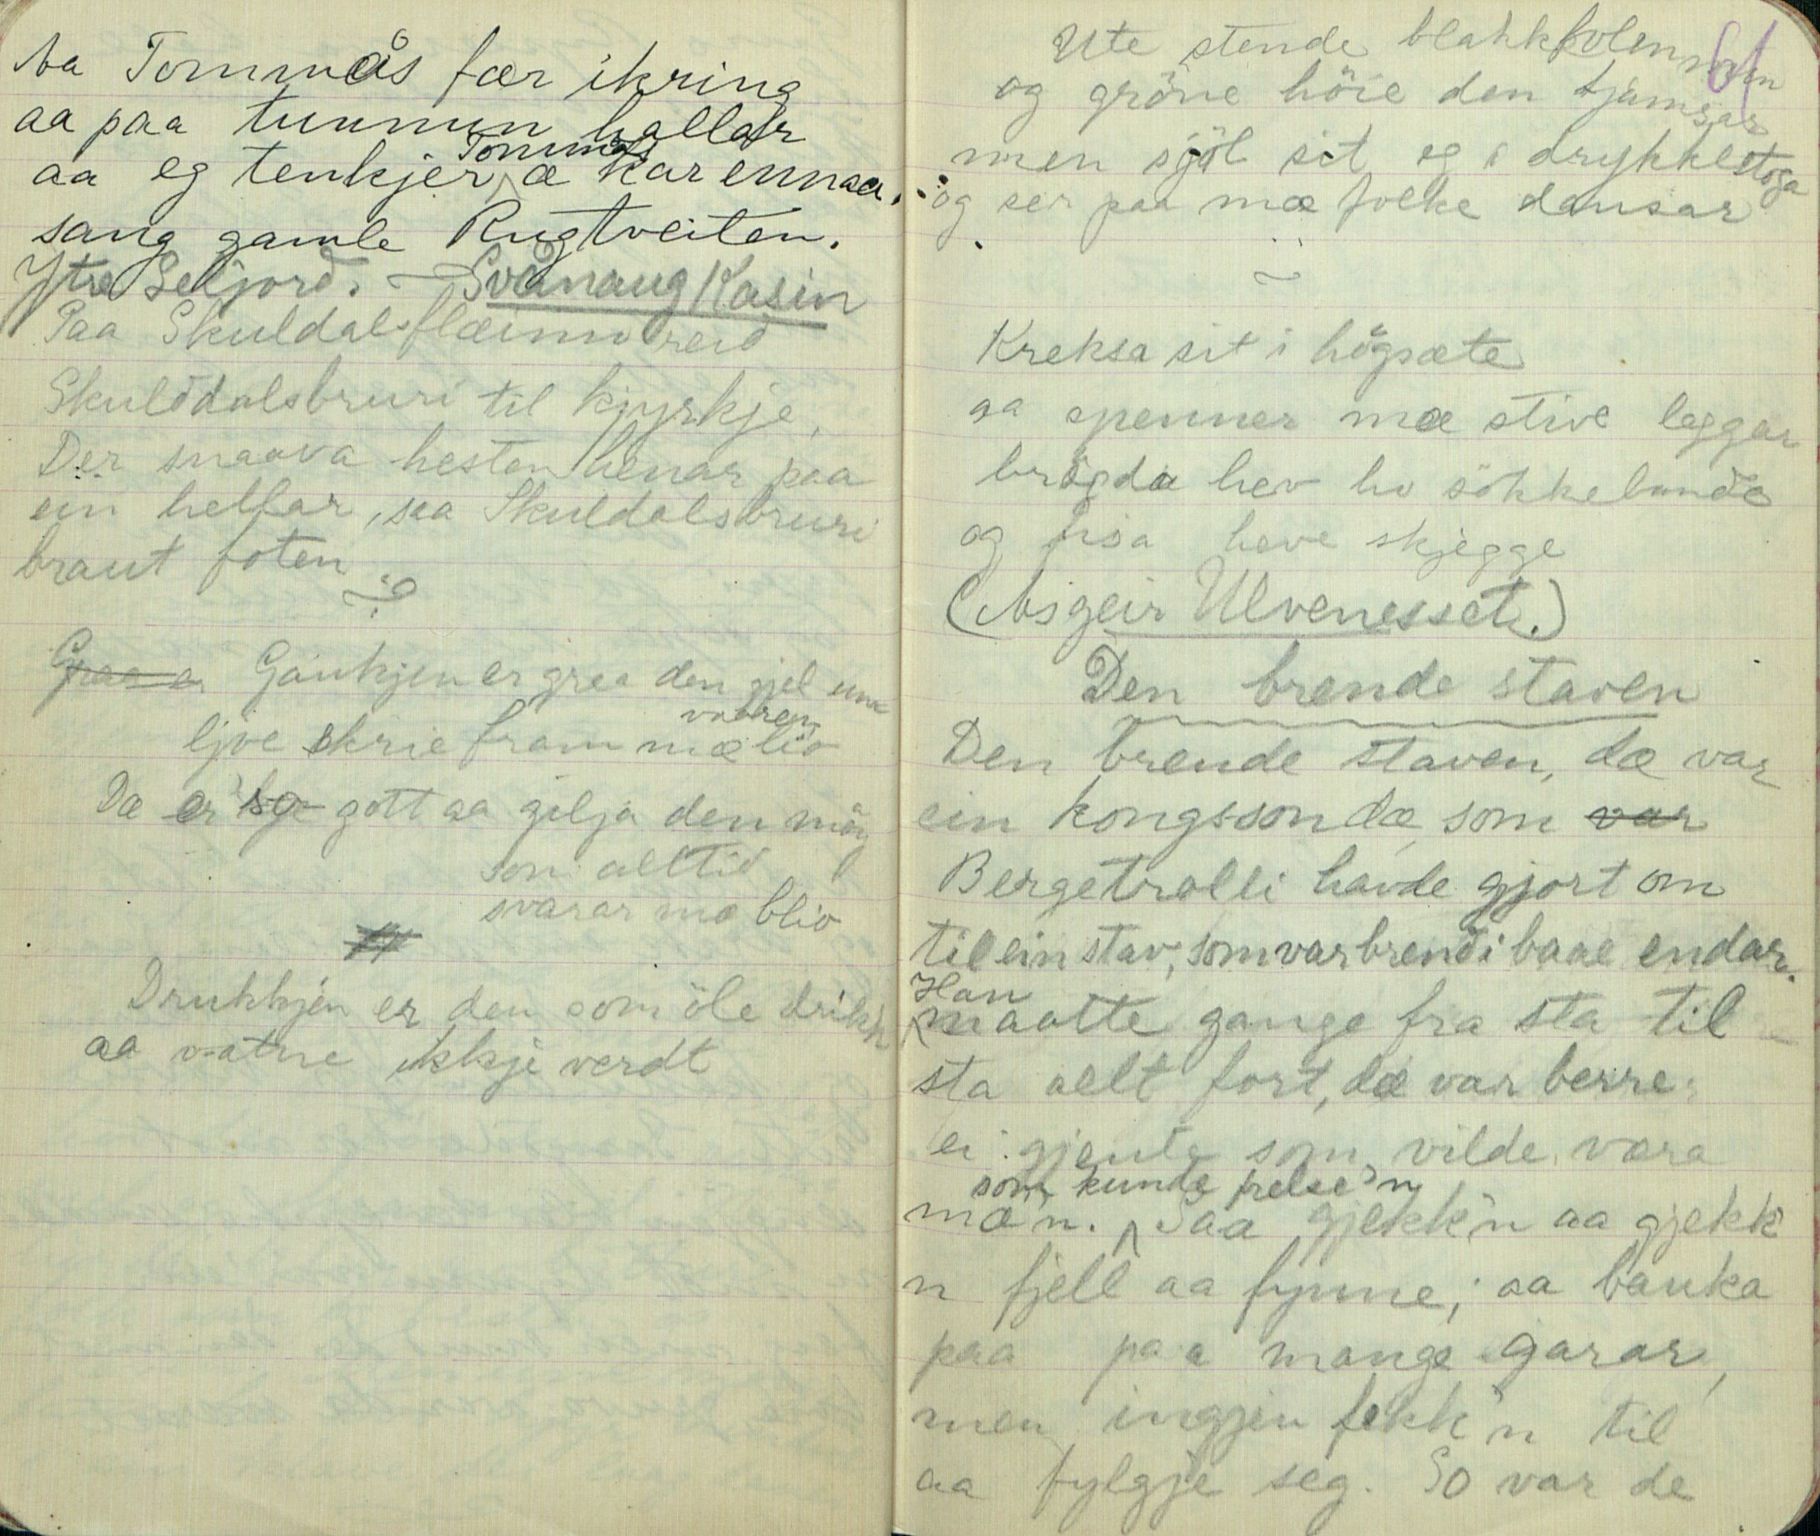 Aa Tommås fær ikring
aa paa tunnun hallar
aa eg tenkjer Tommås æ kar ennaa.
sang gamle Rugtveiten.
Ytre Seljord. - Svanaug Kasin
Paa Skuldalsflæinno reið
Skulddalsbruri til kjyrkje,
Der snaava hesten henar paa
ein hellar, saa Skuldalsbruri
braut foten
Graa er Gaukjen er graa den gjel una
vaaren
ljoe skrie fram mæ lio
Dæ er so gott aa gilja den möy
som alltid
svarar mæ blio
Drukkjen er den som öle drikk
aa vatne ikkje verdt
61
Ute stende blakkfolen min
og gröne höie den tjamsar
men sjöl sit eg i drykkestoga
og ser paa mæ folke dansar
Kreksa sit i högsæte
aa spenner mæ stive leggar
brögda hev ho sökkebunde
og fisa heve skjegge
(Asgeir Ulvenesset.)
Den brende staven
Den brende staven, dæ var
ein kongsson dæ, som var
Bergetrolli havde gjort om
til ein stav, som var brend i baae endar.
Han
maatte gange fra sta til
sta allt fort, dæ var berre
ei gjente som vilde væra
som kunde frelse'n
mæ'n. Saa gjekk'n aa gjekk
n fjell aa fynne; aa banka
paa paa mange garar,
men ingjen fekk'n til
aa fylgje seg. So var de